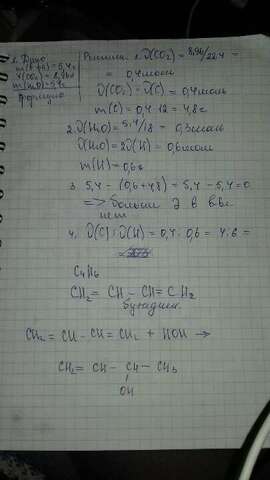 1. Дано
m(в-ва)=5,4г
V(CO₂)=8,96л
m(H₂O)=5,4г
формула
Решение: 1. ν(CO₂) = 8,96/22,4 =
= 0,4 моль
ν(CO₂) = ν(C) = 0,4 моль
m(C) = 0,4·12 = 4,8г
2. ν(H₂O) = 5,4/18 = 0,3 моль
ν(H₂O) = 2ν(H) = 0,6 моль
m(H) = 0,6г
3. 5,4 - (0,6+4,8) = 5,4 - 5,4 = 0
=> больше Э в в-ве
нет
4. ν(C) : ν(H) = 0,4 : 0,6 = 4:6 =
C₄H₆
CH₂ = CH - CH = CH₂
бутадиен
CH₂ = CH - CH = CH₂ + HOH →
CH₂ = CH - CH - CH₃
OH